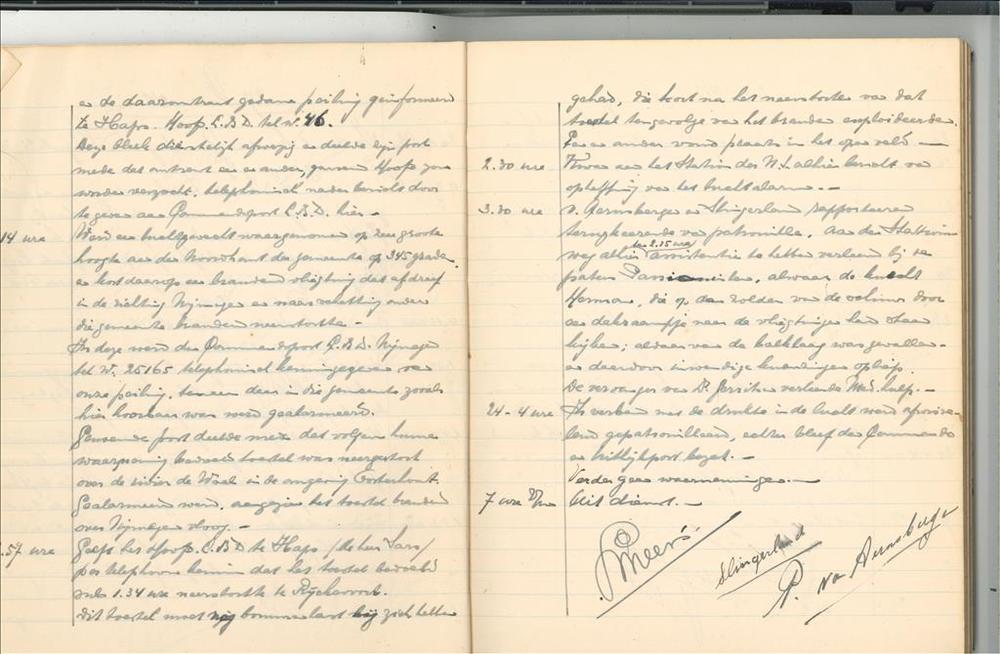 en de daaromtrent gedane peiling geinformeerd
te Haps. Hoofd L.B.D. tel. n. 46.
Deze bleek dienstelijk afwezig en deelde zijn post
mede dat omtrent een en ander, genoemd Hoofd zou
worden verzocht, telephonisch nader bericht door
te geven aan Commandopost L.B.D. hier. -
14 ure Werd een luchtgevecht waargenomen op zeer groote
hoogte aan de Noordkant der gemeente op 345 graden
en kort daarop een brandend vliegtuig dat afdreef
in de richting Nijmegen en naar schatting onder
die gemeente brandend neerstortte. -
In deze werd den Commandopost L.B.D. Nijmegen
tel. N. 25165 telephonisch kennisgegeven van
onze peiling, terwijl daar in die gemeente zooals
hier hoorbaar was werd gealarmeerd.
Genoemde post deelde mede dat volgens hunne
waarneming bedoeld toestel was neergestort
over de rivier de Waal in de omgeving Oosterhout.
Gealarmeerd werd, aangezien het toestel brandend
over Nijmegen vloog. -
.57 ure Geeft het Hoofd L.B.D. te Haps
per telephoon kennis dat het toestel bedoeld
sub 1.34 ure neerstortte te Rijckevoort.
Dit toestel moet nog bommenlast bij zich hebben
gehad, die kort na het neerstorten van dat
toestel tengevolge van het branden explodeerden.
Een en ander vond plaats in het open veld. -
2.30 ure Kwam aan het Station der N.S. alhier bericht van
opheffing van het luchtalarm. -
3.30 ure v. Aernsbergen en Slingerland rapporteeren
terugkeerende van patrouille, aan den Stations
weg alhier te 2.15 ure assistentie te hebben verleend bij de
paters Passionisten, alwaar de knecht
Herman, die op den zolder van de schuur door
een dakraampje naar de vliegtuigen had staan
kijken; aldaar van de kalklaag was gevallen -
en daardoor inwendige kneuzingen opliep.
De vervanger van Dr. verleende Med. hulp. -
24 - 4 ure In verband met de drukte in de lucht werd afwisse-
lend gepatrouilleerd, echter bleef den Commando
en uitkijkpost bezet. -
Verder geen waarnemingen. -
7 ure Uit dienst. -
Meers
Slingerland
P. van Aernsbergen